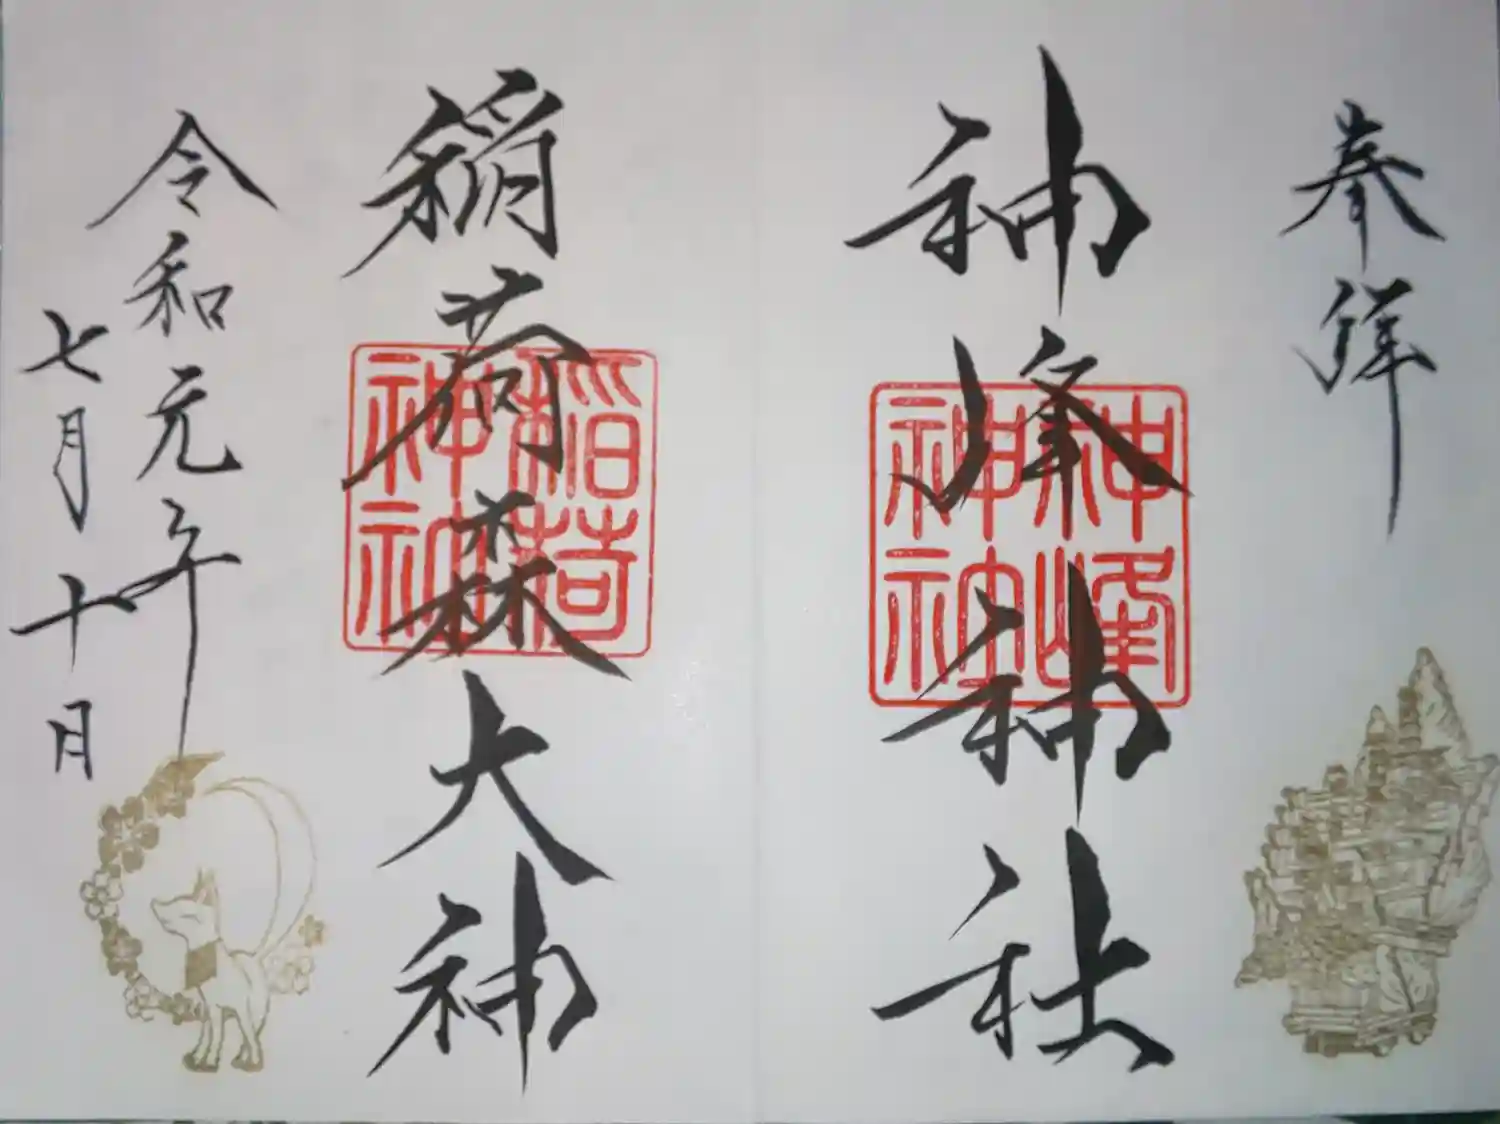 奉拝
神峰神社
神峰
神社
稲荷森大神
稲荷
神社
令和元年
七月十日